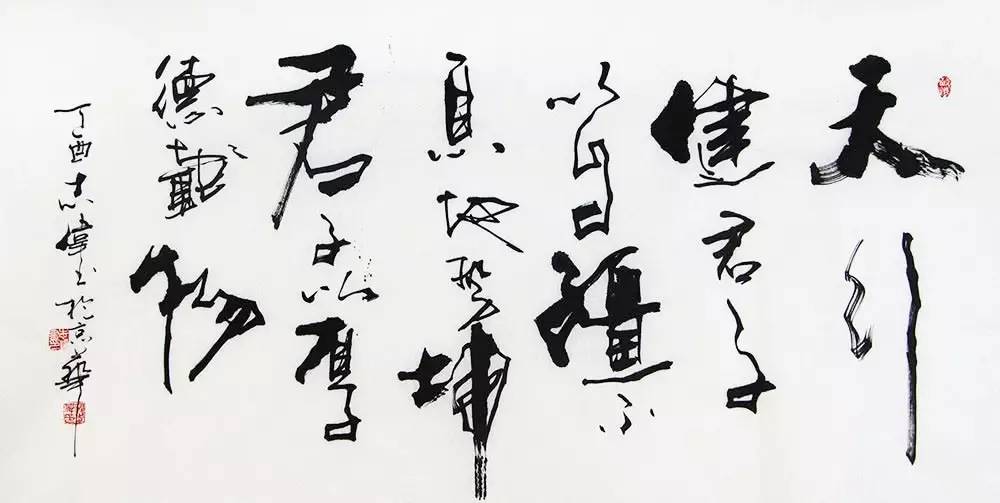 天行
健君子
以自强不
息地势坤
君子以厚
德载物
丁酉志伟书于京华